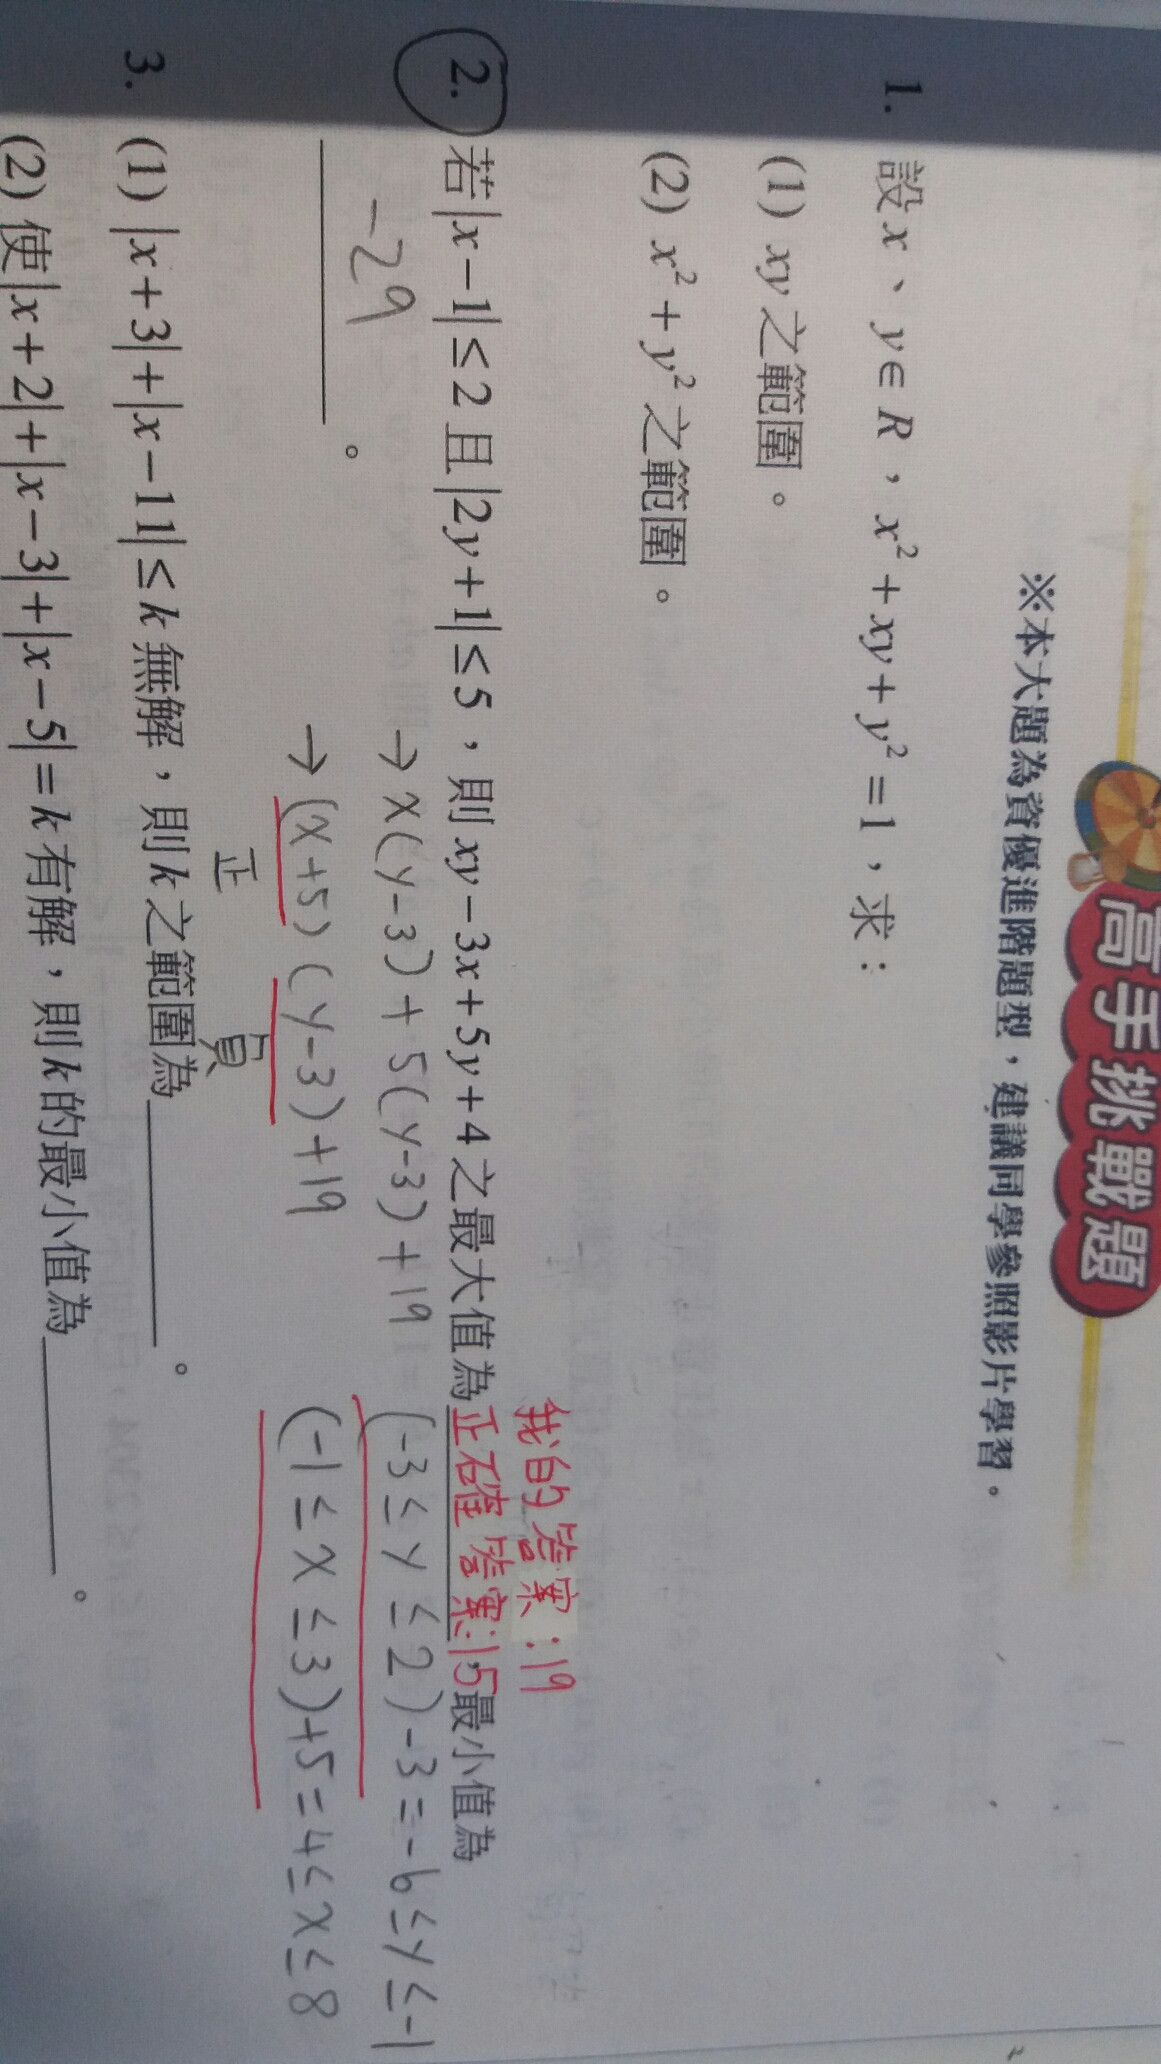 高手挑戰題
※本大題為資優進階題型，建議同學參照影片學習。
1. 設x、y∈R，x²+xy+y²=1，求：
(1) xy之範圍。
(2) x²+y²之範圍。
我的答案：19
2. 若|x-1|≤2且|2y+1|≤5，則xy-3x+5y+4之最大值為 正確答案：15 最小值為
-29 。
→ x(y-3)+5(y-3)+19= (-3≤y≤2)-3=-6≤y≤-1
→ (x+5)(y-3)+19 (-1≤x≤3)+5=4≤x≤8
正 負
3. (1) |x+3|+|x-11|≤k無解，則k之範圍為 。
(2) 使|x+2|+|x-3|+|x-5|=k有解，則k的最小值為 。